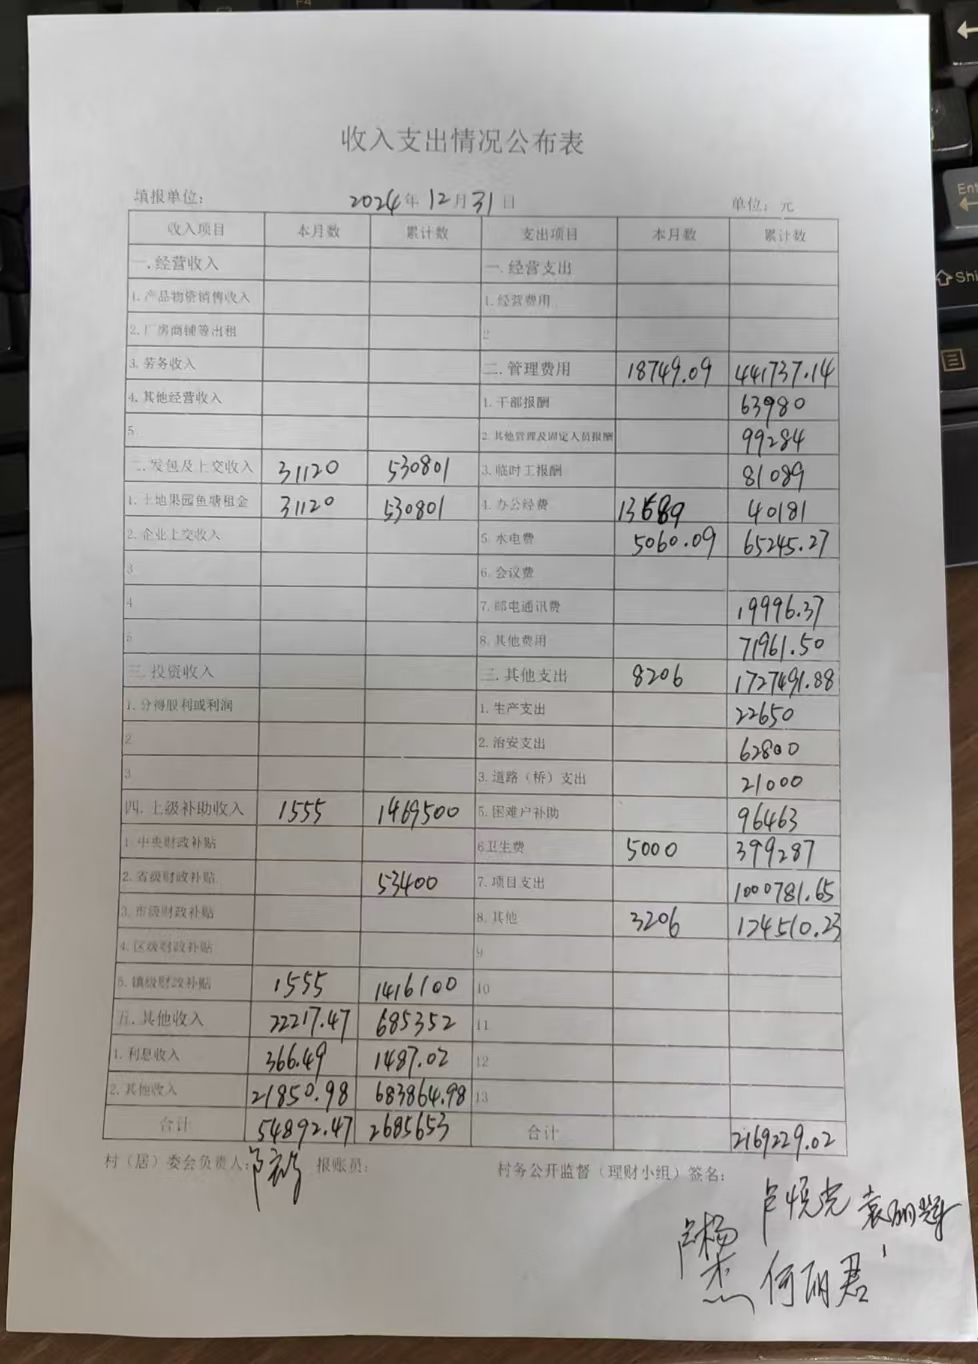 收入支出情况公布表
填报单位: 2024年12月31日 单位: 元
收入项目 本月数 累计数 支出项目 本月数 累计数
一.经营收入 一.经营支出
1.产品物资销售收入 1.经营费用
2.厂房商铺等出租 2
3.劳务收入 二.管理费用 18749.09 441737.14
4.其他经营收入 1.干部报酬 63980
5 2.其他管理及固定人员报酬 99284
二.发包及上交收入 31120 530801 3.临时工报酬 81089
1.土地果园鱼塘租金 31120 530801 4.办公经费 13689 40181
2.企业上交收入 5.水电费 5060.09 65245.27
3 6.会议费
4 7.邮电通讯费 19996.37
5 8.其他费用 71961.50
三.投资收入 三.其他支出 8206 1727491.88
1.分得股利或利润 1.生产支出 22650
2 2.治安支出 62800
3 3.道路（桥）支出 21000
四.上级补助收入 1555 1469500 5.困难户补助 96463
1.中央财政补贴 6卫生费 5000 399287
2.省级财政补贴 53400 7.项目支出 1000781.65
3.市级财政补贴 8.其他 3206 124510.23
4.区级财政补贴 9
5.镇级财政补贴 1555 1416100 10
五.其他收入 22217.47 685352 11
1.利息收入 366.49 1487.02 12
2.其他收入 21850.98 683864.98 13
合计 54892.47 2685653 合计 2169229.02
村（居）委会负责人: 报账员: 村务公开监督（理财小组）签名:
卢悦光
卢杨杰 何丽君